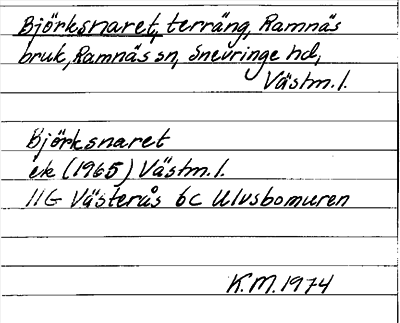 Björksnaret, terräng, Ramnäs
bruk, Ramnäs sn, Snevringe hd,
Västm.l.
Björksnaret
ek (1965) Västm.l.
11G Västerås 6c Ulvsbomuren
K.M. 1974